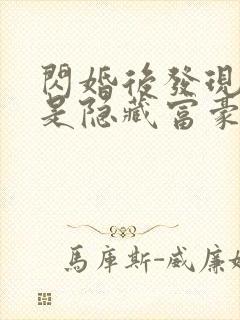 閃婚後發現
是隐藏富豪
馬庫斯-威廉